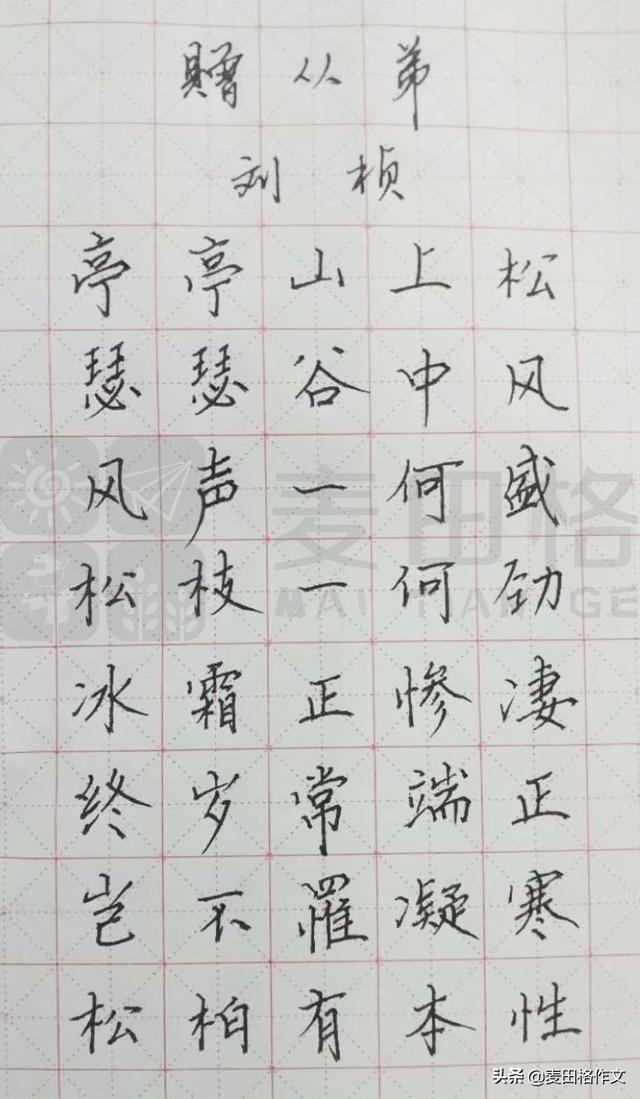 贈从弟
刘桢
亭亭山上松
瑟瑟谷中风
风声一何盛
松枝一何劲
冰霜正惨凄
终岁常端正
岂不罹凝寒
松柏有本性
麦田格
MAI TIAN GE
头条 @麦田格作文